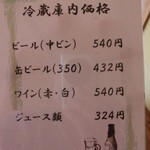 冷蔵庫内価格
ビール(中ビン) 540円
缶ビール(350) 432円
ワイン(赤・白) 540円
ジュース類 324円